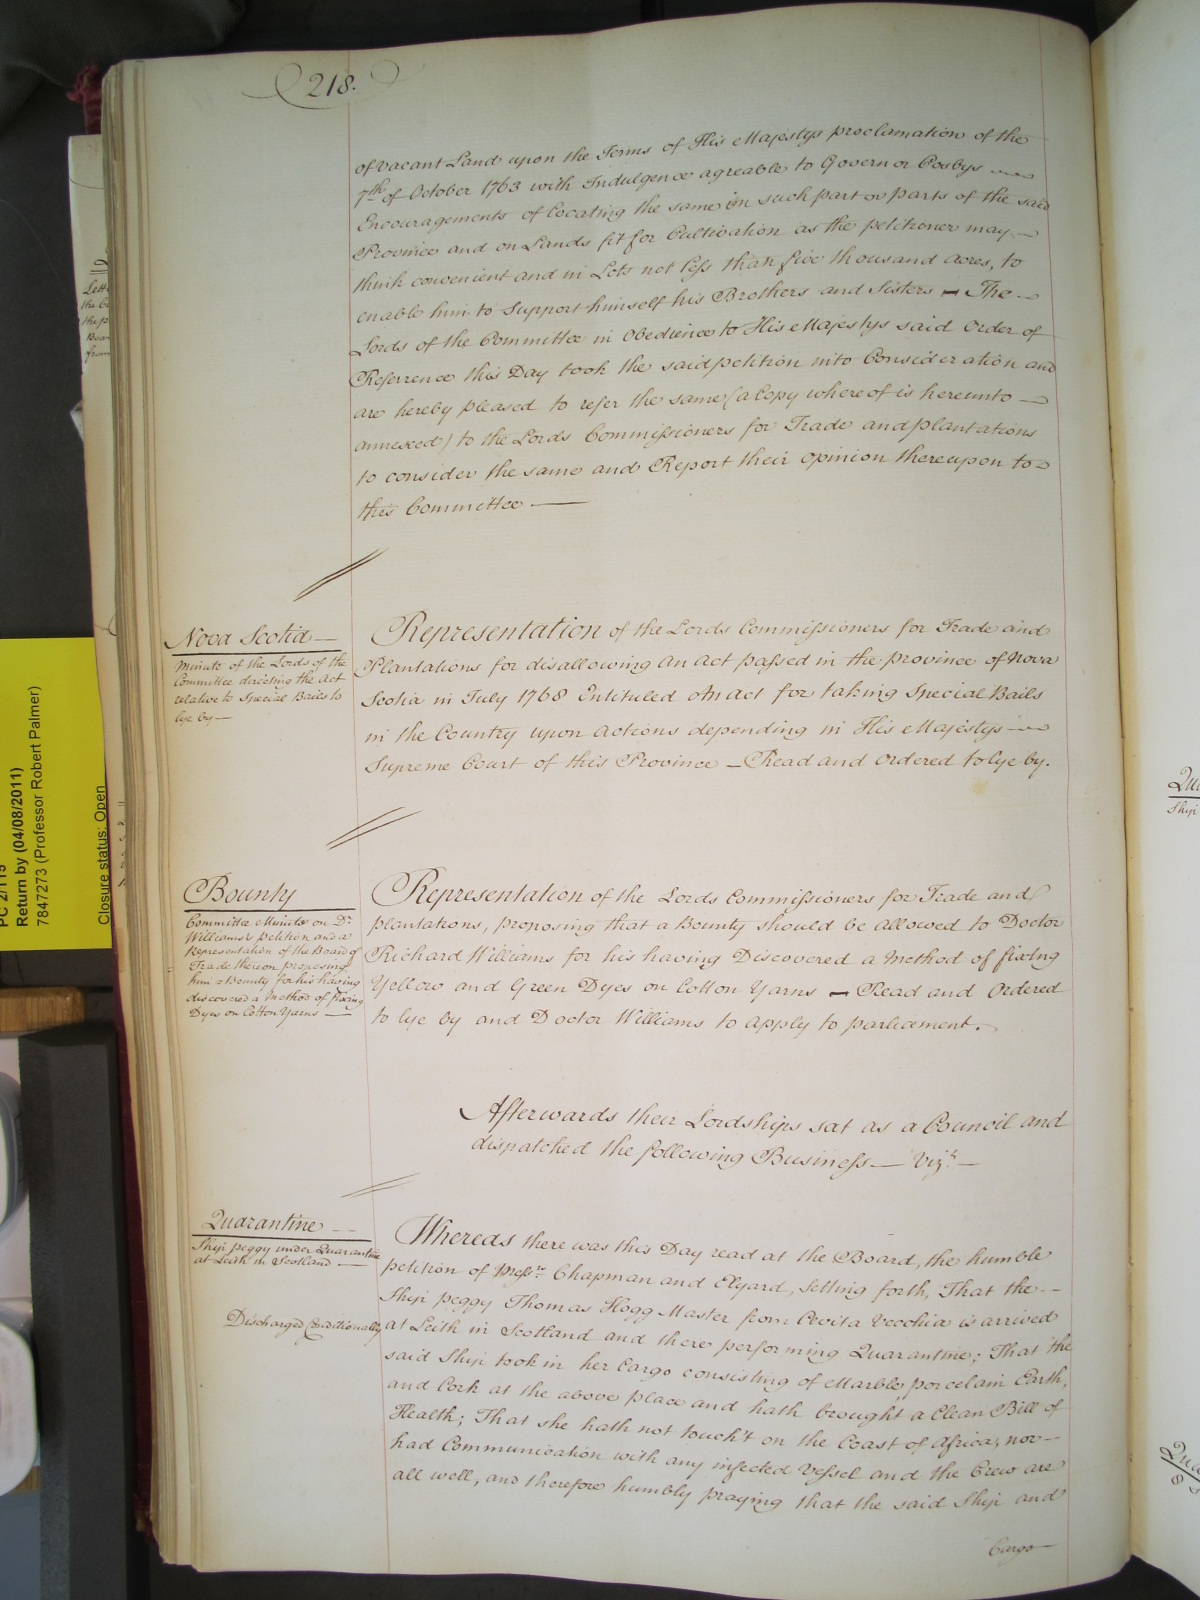 218.
of vacant Land upon the Terms of His Majestys proclamation of the
7th of October 1763 with Indulgence agreable to Governor Cosbys
Encouragements of locating the same in such part or parts of the said
Province and on Lands fit for Cultivation as the petitioner may
think convenient and in Lots not less than five thousand Acres, to
enable him to Support himself his Brothers and Sisters - The
Lords of the Committee in Obedience to His Majestys said Order of
Referrence this Day took the said petition into Consideration and
are hereby pleased to refer the same (a Copy whereof is hereunto
annexed) to the Lords Commissioners for Trade and plantations
to consider the same and Report their opinion thereupon to
this Committee
Nova Scotia
Minute of the Lords of the
Committee directing the Act
relative to Special Bails to
lye by
Representation of the Lords Commissioners for Trade and
Plantations for disallowing an Act passed in the province of Nova
Scotia in July 1768 Entituled An Act for taking Special Bails
in the Country upon Actions depending in His Majestys
Supreme Court of this Province - Read and Ordered to lye by.
Bounty
Committee Minute on Dr
Williams's petition and a
Representation of the Board of
Trade thereon proposing
him a Bounty for his having
discovered a Method of fixing
Dyes on Cotton Yarns
Representation of the Lords Commissioners for Trade and
plantations, proposing that a Bounty should be allowed to Doctor
Richard Williams for his having Discovered a Method of fixing
Yellow and Green Dyes on Cotton Yarns - Read and Ordered
to lye by and Doctor Williams to apply to parliament.
Afterwards their Lordships sat as a Council and
dispatched the following Business - Vizt
Quarantine
Ship peggy under Quarantine
at Leith in Scotland
Discharged Conditionally
Whereas there was this Day read at the Board, the humble
petition of Messrs Chapman and Elyard, Setting forth, That the
Ship peggy Thomas Hogg Master from Civita Vecchia is arrived
at Leith in Scotland and there performing Quarantine; That the
said Ship took in her Cargo consisting of Marble, porcelain Earth,
and Cork at the above place and hath brought a Clean Bill of
Health; That she hath not touch't on the Coast of Africa, nor
had Communication with any infected Vessel and the Crew are
all well, and therefore humbly praying that the said Ship and
Cargo
Return by (04/08/2011)
7847273 (Professor Robert Palmer)
Closure status: Open